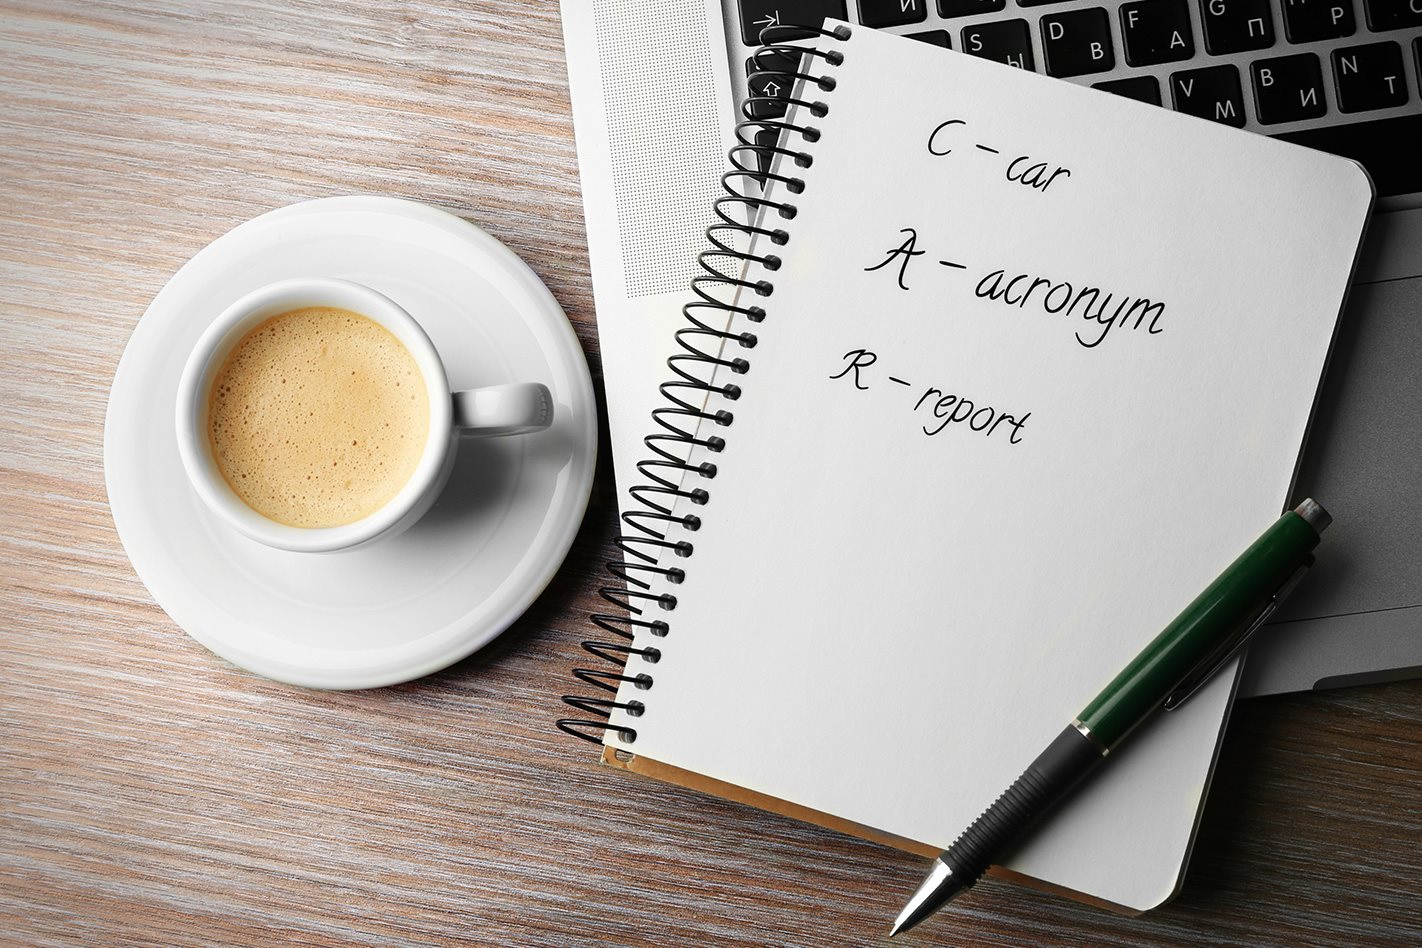 C - car
A - acronym
R - report
И
G П
Р
F А
D В
S Ы
N Т
B И
V М